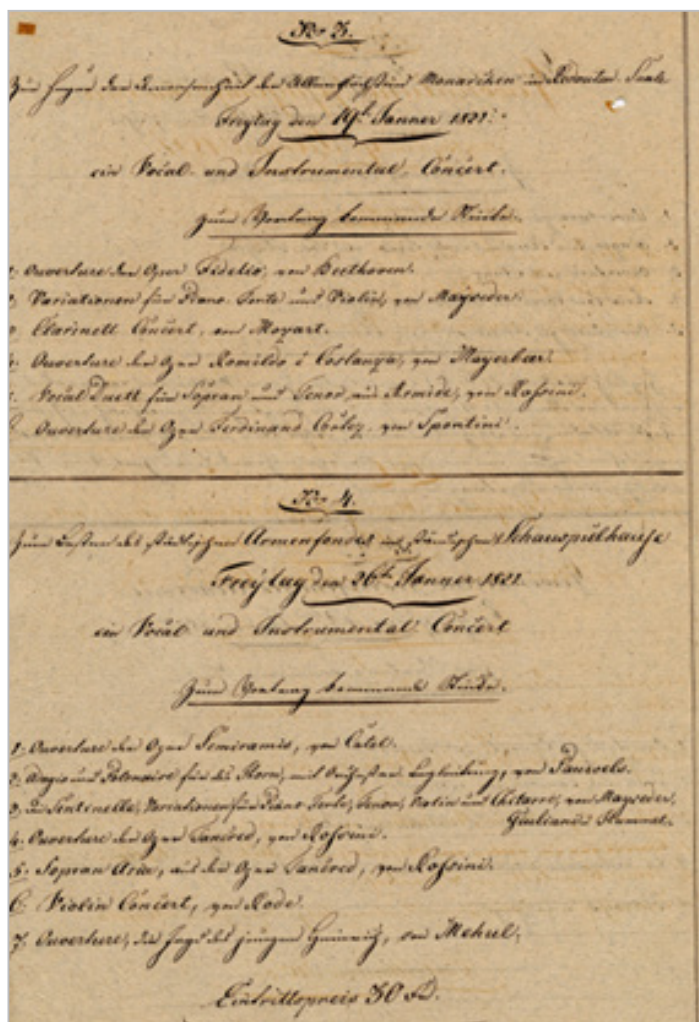 No 3.
Zur Feyer der Anwesenheit der Allerhöchsten Monarchen im Redouten Saale
Freytag den 19t Janner 1821.
ein Vocal und Instrumental Concert.
Zum Vortrag kommende Stücke.
1. Ouverture der Oper Fidelio, von Beethoven.
2. Variationen für Piano-Forte und Violin, von Mayseder.
3. Clarinett Concert, von Mozart.
4. Ouverture der Oper Romilda e Costanza, von Mayerbeer.
5. Vocal Duett für Sopran und Tenor, aus Armide, von Rossini.
6. Ouverture der Oper Ferdinand Cortez von Spontini.
No 4.
Zum Besten des städtischen Armenfondes im ständischen Schauspielhause
Freÿtag den 26t Janner 1821
ein Vocal und Instrumental Concert
Zum Vortrag kommende Stücke.
1. Ouverture der Oper Semiramis, von Catel.
2. für das Horn, mit Orchester Begleitung, von
3. La Sentinelle, Variationen für Piano-Forte, Tenor, Violin und Chitarre, von Mayseder,
Giuliani u. Hummel.
4. Ouverture der Oper Tancred, von Rossini.
5. Sopran Aria, aus der Oper Tancred, von Rossini.
6. Violin Concert, von Rode.
7. Ouverture, die Jagd des jungen Heinrich, von Mehul.
Eintrittspreis 30